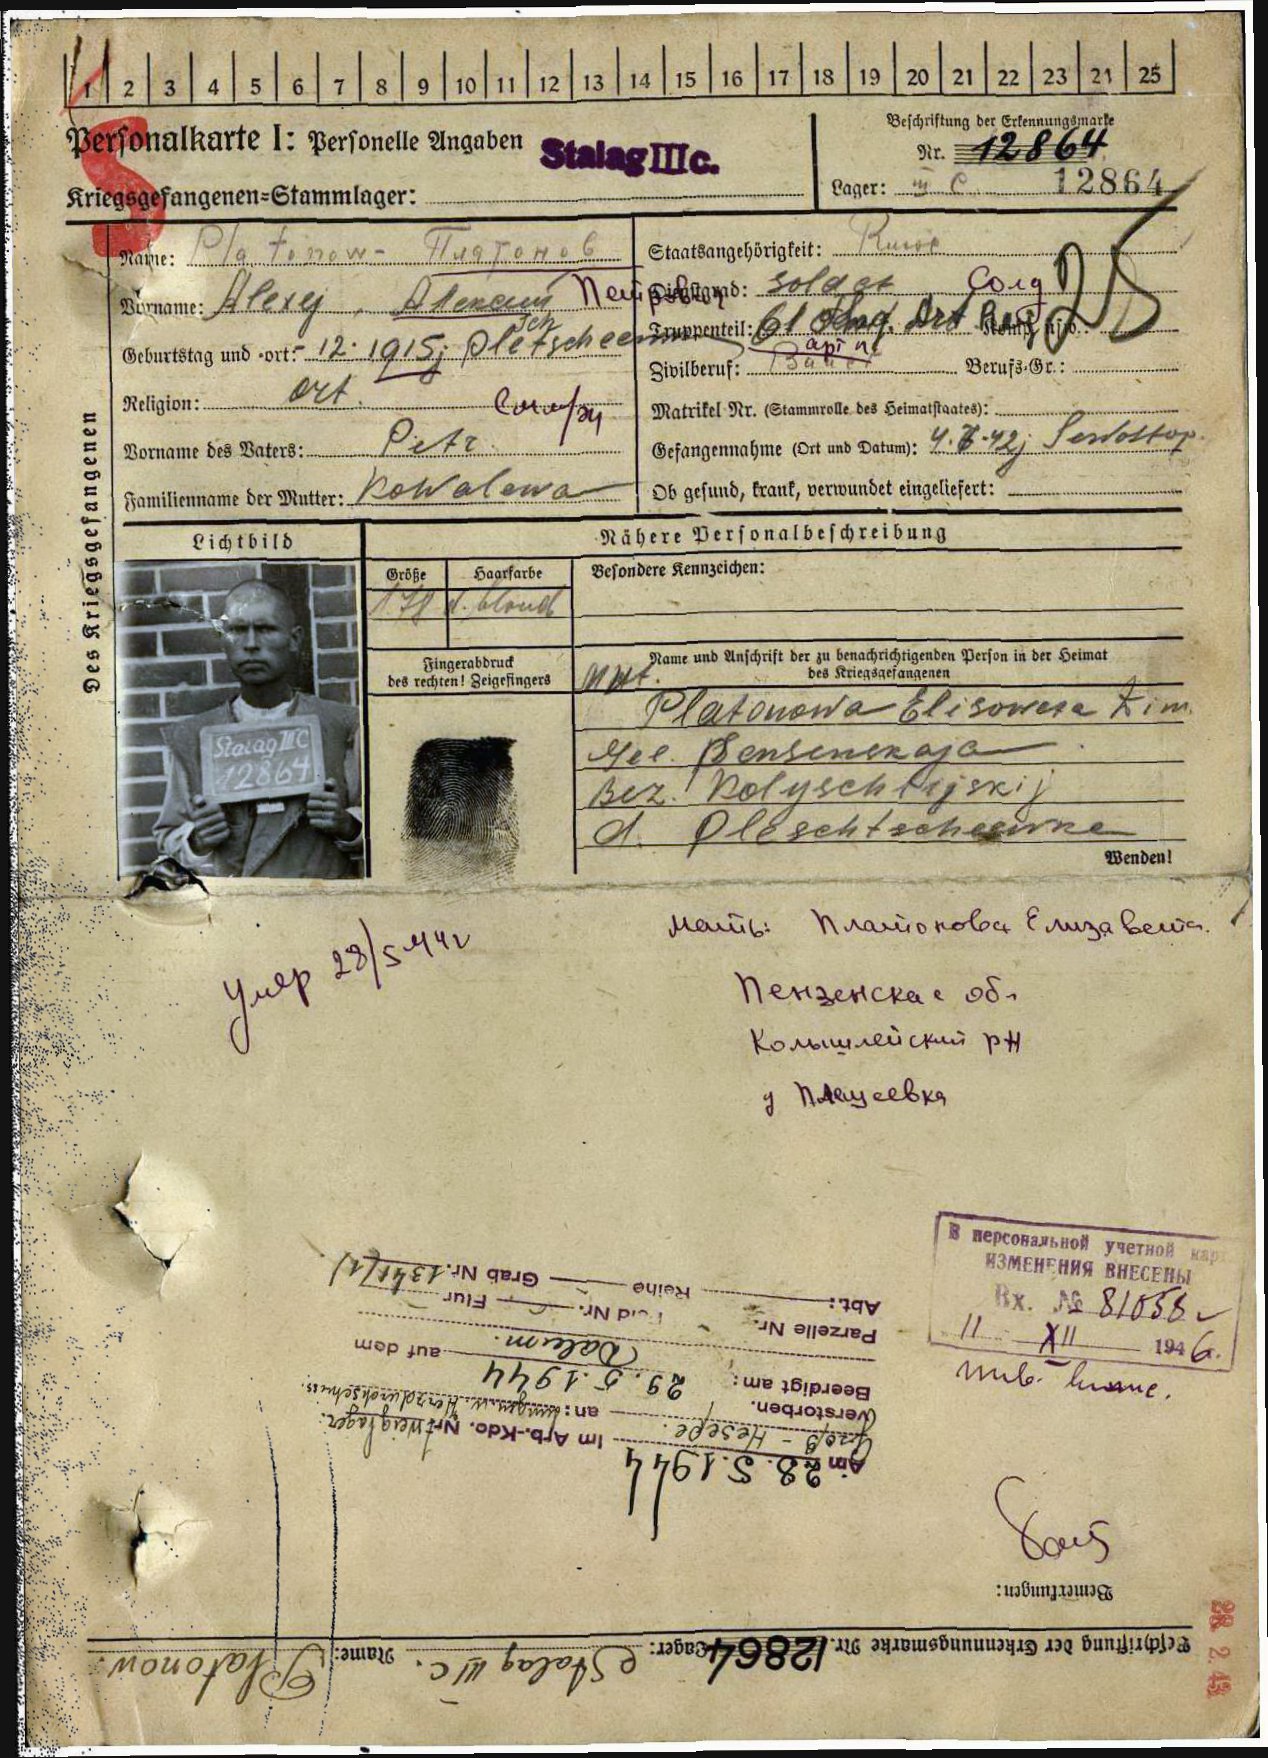 1 2 3 4 5 6 7 8 9 10 11 12 13 14 15 16 17 18 19 20 21 22 23 24 25
Personalkarte I: Personelle Angaben
Stalag III c.
Kriegsgefangenen=Stammlager:
Beschriftung der Erkennungsmarke
Nr. 12864
Lager: III C 12864
Des Kriegsgefangenen
Name: Platonow - Платонов
Vorname: Alexej, Алексей Петрович
Geburtstag und =ort: 12. 1915;
Religion: ort.
Vorname des Vaters: Petr
Familienname der Mutter: Kowalewa
Staatsangehörigkeit: Russe
Dienstgrad: Soldat Солд
Truppenteil: 61 Art Reg Komp. usw.:
Zivilberuf: Bauer Berufs=Gr.:
Matrikel Nr. (Stammrolle des Heimatstaates):
Gefangennahme (Ort und Datum): 4.7.42; Sewostop.
Ob gesund, krank, verwundet eingeliefert:
Lichtbild
Nähere Personalbeschreibung
Größe
Haarfarbe
Besondere Kennzeichen:
178
d. blond
Stalag III C
12864
Fingerabdruck
des rechten! Zeigefingers
Name und Anschrift der zu benachrichtigenden Person in der Heimat
des Kriegsgefangenen
Mut.
Platonowa Elisoweta
Gee. Pensenskaja
Bez. Kolyschlejskij
d. Pleschtscheewka
Wenden!
Умер 28/5 44г
мать: Платонова Елизавета.
Пензенская об.
Колышлейский рн
д Плещеевка
В персональной учетной карт
ИЗМЕНЕНИЯ ВНЕСЕНЫ
Вх. № 81058
11 XII 1946.
Beschriftung der Erkennungsmarke Nr. 12864 Lager: Stalag III C. Name: Platonow.
Bemerkungen:
Am 28.5.1944
Im Arb.-Kdo. Nr. Zweiglager
Groß-Hesepe. an:
verstorben.
Beerdigt am: 29.5.1944 auf dem
Dalum.
Parzelle Nr. Feld Nr. Flur
Abt.: Reihe Grab Nr.
28 2.43